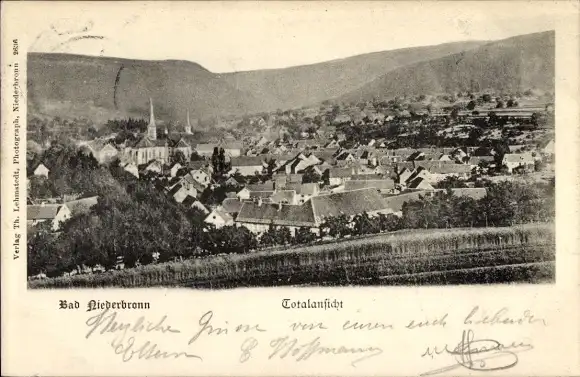 Verlag Th. Lehmstedt, Photograph, Niederbronn 2636
Bad Niederbronn
Totalansicht
Herzliche Grüsse von euren euch liebenden
Eltern E Hoffmann